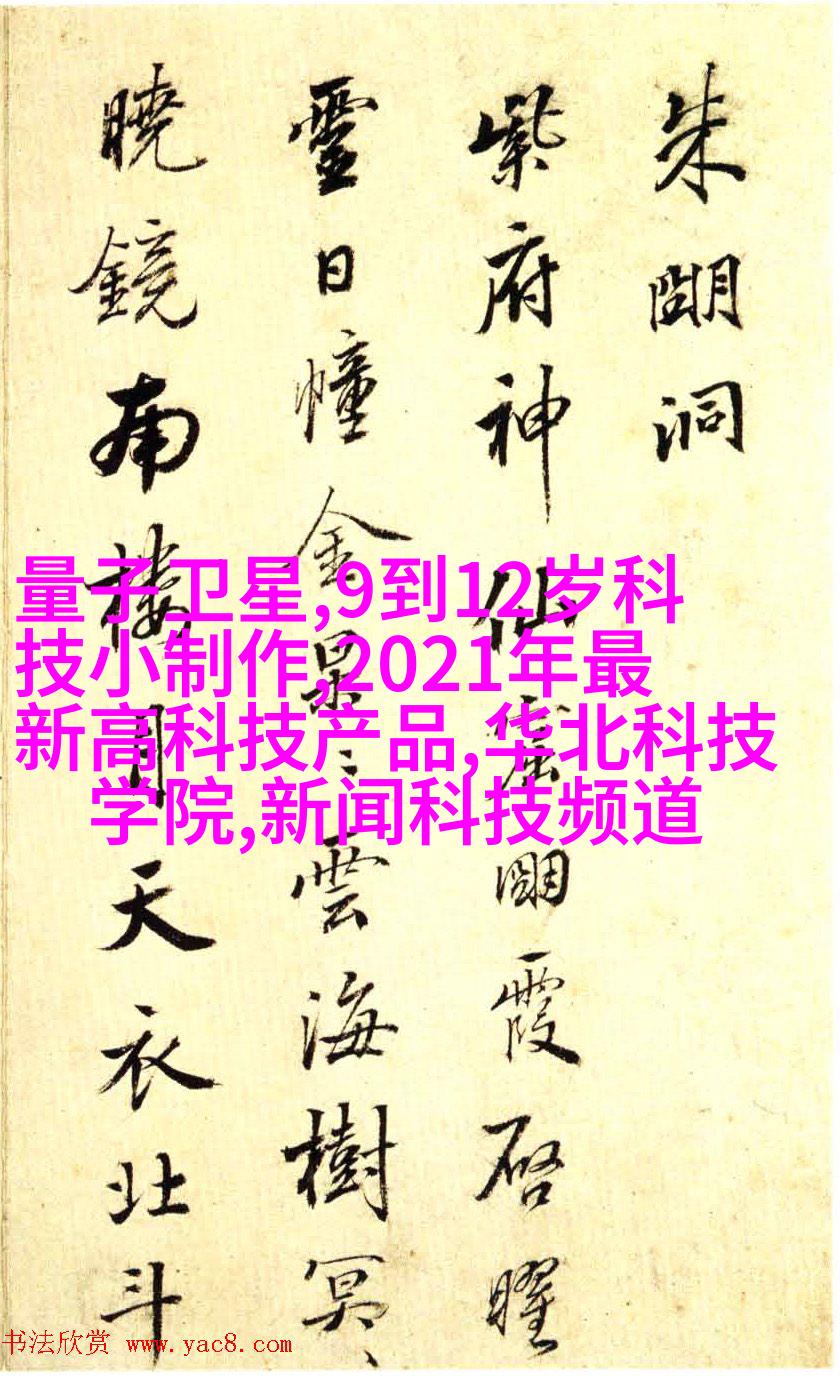 朱朙洞
紫府神仙窟朙霞啓曜
靈日幢金景〻雲海樹冥〻
曉鏡南樓月天衣北斗
量子卫星,9到12岁科
技小制作,2021年最
新高科技产品,华北科技
学院,新闻科技频道
书法欣赏 www.yac8.com